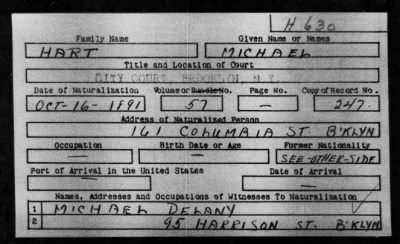 H-630
Family Name Given Name or Names
HART MICHAEL
Title and Location of Court
CITY COURT, BROOKLYN, N.Y.
Date of Naturalization Volume or Bundle No. Page No. Copy of Record No.
OCT-16-1891 57 — 247.
Address of Naturalized Person
161 COLUMBIA ST. B'KLYN
Occupation Birth Date or Age Former Nationality
— — SEE-OTHER-SIDE
Port of Arrival in the United States Date of Arrival
— —
Names, Addresses and Occupations of Witnesses To Naturalization
1 MICHAEL DELANY
2 95 HARRISON ST. B'KLYN